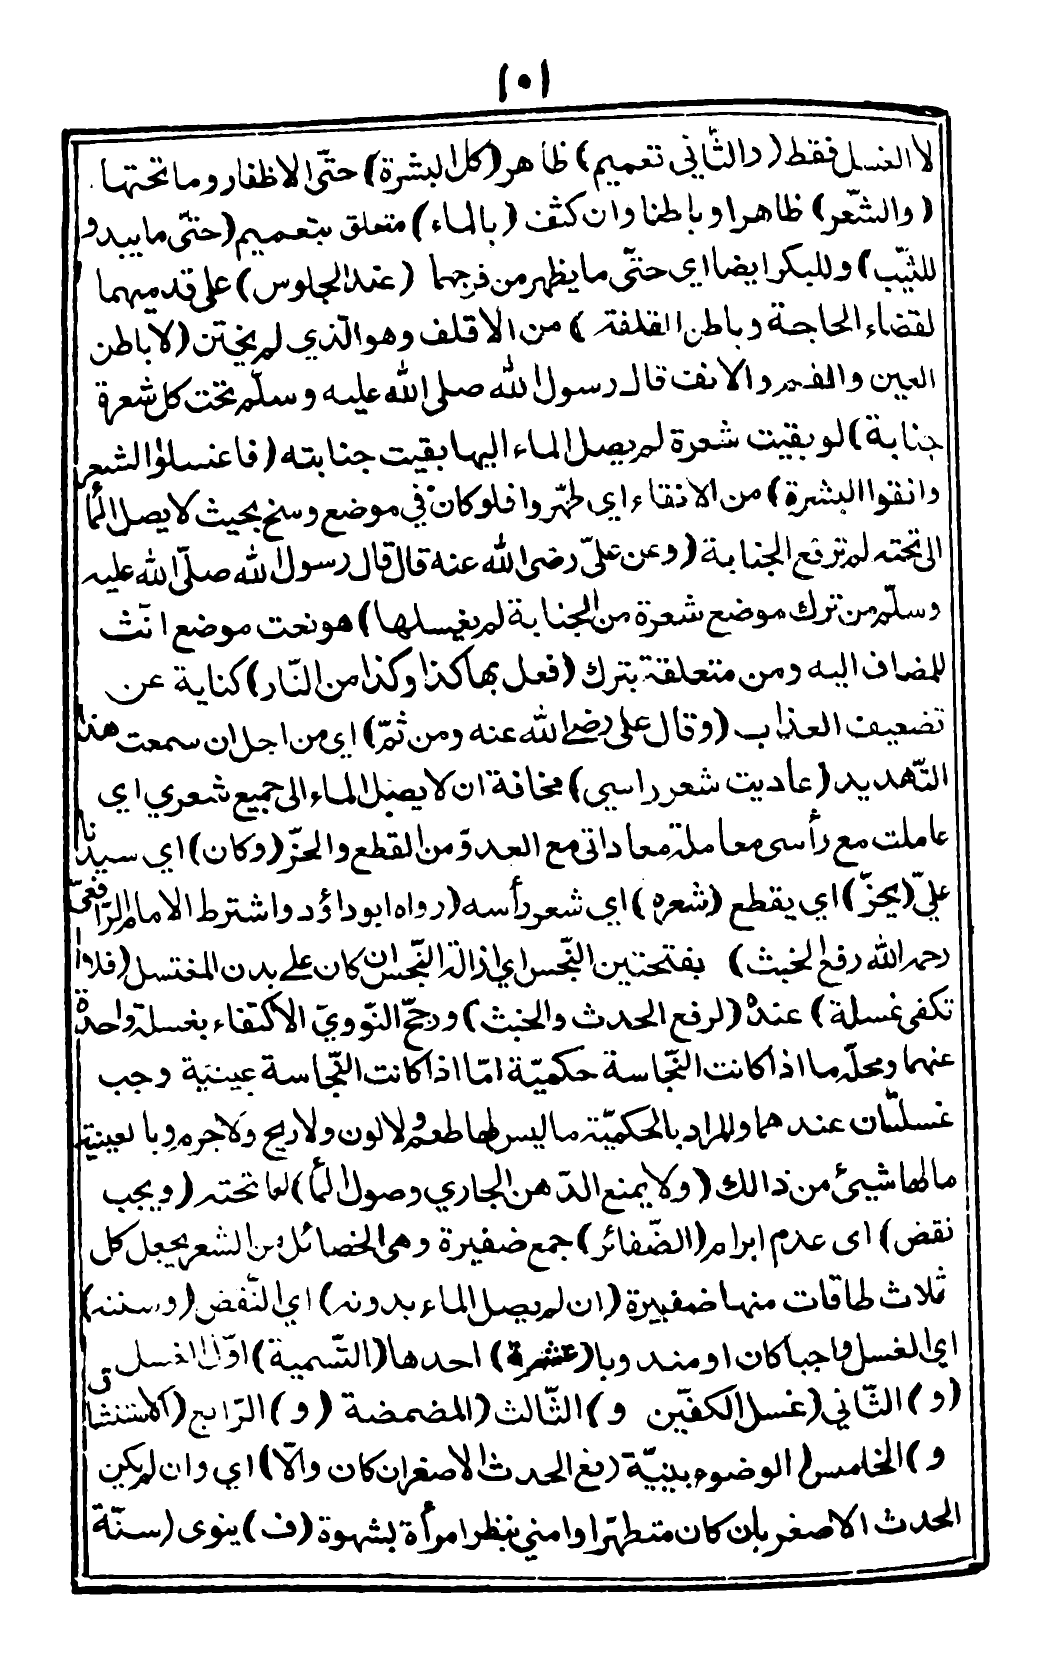 ١٠١
لا الغسل فقط (والثّاني تعميم) ظاهر (كل البشرة) حتّى الاظفار وما تحتها
(والشّعر) ظاهرا وباطنا وان كثف (بالماء) متعلق بتعميم (حتّى ما يبدو
للثيّب) وللبكر ايضا اي حتّى ما يظهر من فرجها (عند الجلوس) على قدميها
لقضاء الحاجة وباطن القلفة) من الاقلف وهو الّذي لم يختن (لا باطن
العين والفم والانف قال رسول الله صلى الله عليه وسلّم تحت كل شعرة
جنابة) لو بقيت شعرة لم يصل الماء اليها بقيت جنابته (فاغسلوا الشعر
وانقوا البشرة) من الانقاء اي طهّروا فلو كان في موضع وسخ بحيث لا يصل الما
الى تحته لم ترفع الجنابة (وعن عليّ رضي الله عنه قال قال رسول الله صلّى الله عليه
وسلّم من ترك موضع شعرة من الجنابة لم يغسلها) هو نعت موضع انّث
للمضاف اليه ومن متعلقة بترك (فعل بها كذا وكذا من النّار) كناية عن
تضعيف العذاب (وقال علي رضي الله عنه ومن ثمّ) اي من اجل ان سمعت هذا
التّهديد (عاديت شعر راسي) مخافة ان لا يصل الماء الى جميع شعري اي
عاملت مع رأسى معاملة معاداتي مع العدوّ من القطع والجزّ (وكان) اي سيدنا
عليّ (يجزّ) اي يقطع (شعره) اي شعر رأسه (رواه ابو داؤد واشترط الامام الرّافعيّ
رحمه الله رفع الخبث) بفتحتين النّجس اي ازالة النّجس ان كان على بدن المغتسل (فلا
تكفى غسلة) عنده (لرفع الحدث والخبث) ورجّح النّوويّ الاكتفاء بغسلة واحدة
عنهما ومحلّه ما اذا كانت النّجاسة حكميّة امّا اذا كانت النّجاسة عينية وجب
غسلتان عندهما والمراد بالحكميّة ما ليس لها طعم ولا لون ولا ريح ولا جرم وبالعينية
ما لها شيئ من ذالك (ولا يمنع الدّهن الجاري وصول الما) لما تحته (ويجب
نقض) اى عدم ابرام (الضّفائر) جمع ضفيرة وهى الخصائل من الشعر يجعل كل
ثلاث طاقات منها ضفيرة (ان لم يصل الماء بدونه) اي النّفض (وسننه)
اي الغسل واجبا كان او مندوبا (عشرة) احدها (التّسمية) اوّل الغسل
(و) الثّاني (غسل الكفّين و) الثّالث (المضمضة (و) الرّابع (الاستنشاق
و) الخامس (الوضوء بنيّة رفع الحدث الاصغر ان كان والّا) اي وان لم يكن
الحدث الاصغر بان كان متطهّرا وامني بنظر امرأة بشهوة (ف) ينوى (سنّة